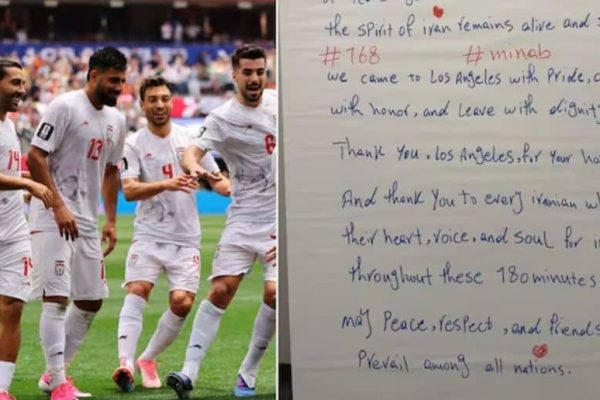 14
13
4
the spirit of iran remains alive and
#168 #minab
we came to Los Angeles with Pride,
with honor, and Leave with dignity
Thank You, Los Angeles, for Your
And thank You to every iranian
their heart, voice, and soul for
throughout these 180minutes
may Peace, respect, and friends
Prevail among all nations.